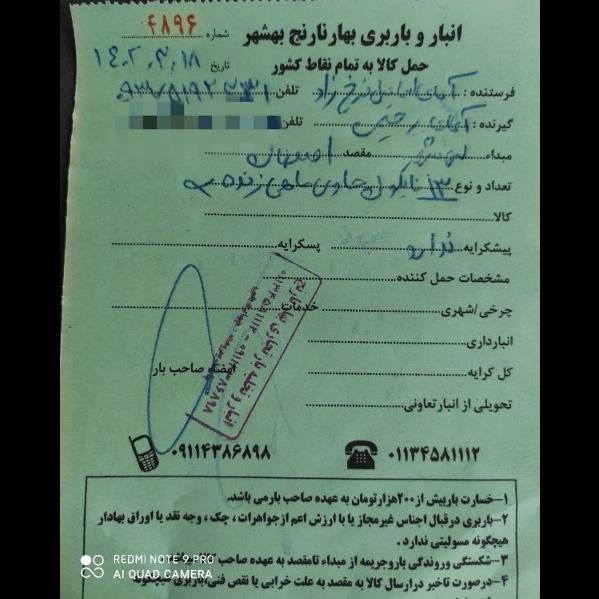 انبار و باربری بهارنارنج بهشهر
شماره ۴۸۹۶
حمل کالا به تمام نقاط کشور
تاریخ ۱۴۰۲,۳,۱۸
فرستنده : آقای اسماعیل فرخ زاد تلفن
گیرنده : آقای رحیمی تلفن
مبداء بهشهر مقصد اصفهان
تعداد و نوع ۱۳ نایلون حاوی ماهی زنده
کالا
پیشکرایه ندارد پسکرایه
مشخصات حمل کننده
چرخی/شهری خدمات
انبارداری
کل کرایه امضاء صاحب بار
تحویلی از انبار تعاونی
۰۹۱۱۴۳۸۶۸۹۸ ۰۱۱۳۴۵۸۱۱۱۲
۱–خسارت باربیش از ۲۰۰هزارتومان به عهده صاحب بارمی باشد.
۲–باربری درقبال اجناس غیرمجاز یا با ارزش اعم ازجواهرات ، چک ، وجه نقد یا اوراق بهادار
هیچگونه مسولیتی ندارد .
۳–شکستگی وروندگی باروجریمه از مبداء تامقصد به عهده صاحب
۴–درصورت تاخیر درارسال کالا به مقصد به علت خرابی یا نقص فنی،باربری هیچگونه
REDMI NOTE 9 PRO
AI QUAD CAMERA